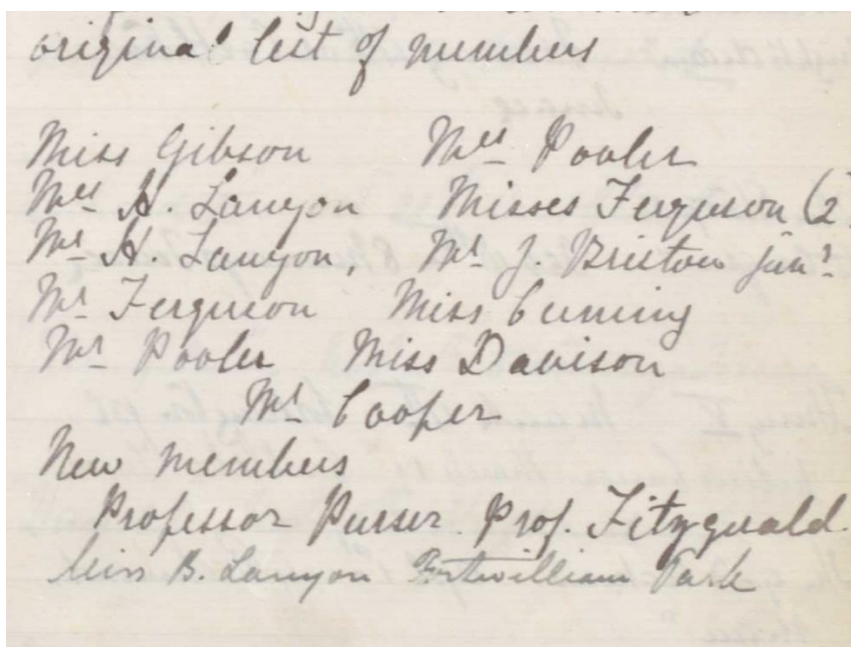 original list of members
Miss Gibson Mrs Pooler
Mrs H Lanyon Misses Ferguson (2
Mr H. Lanyon, Mr J. Bristow junr.
Mr Ferguson Miss Cuming
Mr Pooler Miss Davison
Mr Cooper
New members
Professor Purser. Prof. Fitzgerald.
Miss B. Lanyon Fortwilliam Park